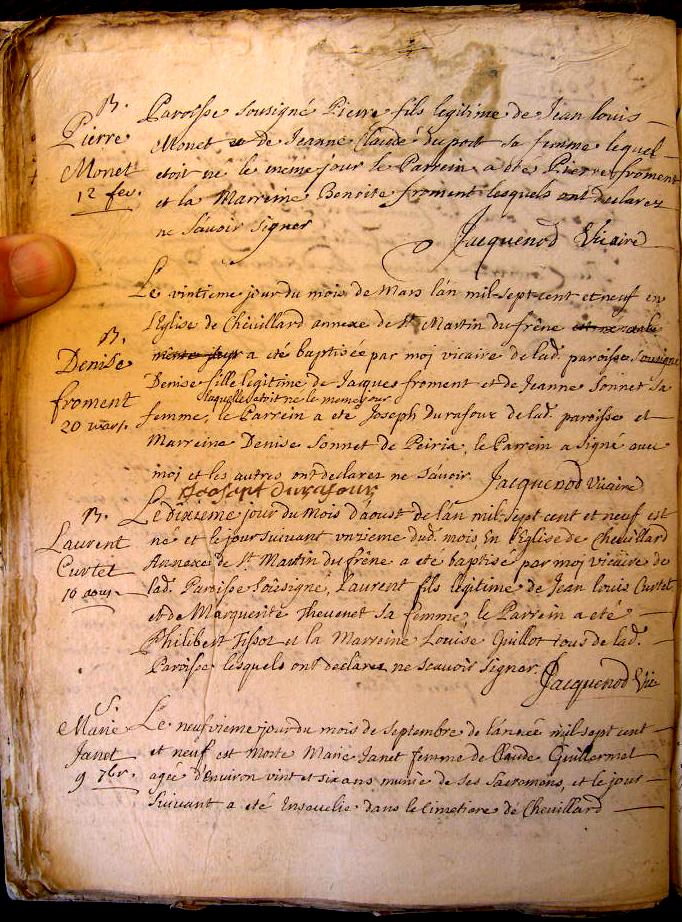 B.
Pierre
Monet
12 fev.
Paroisse sousigné Pierre fils legitime de Jean louis
Monet et de Jeanne Claude duport sa femme lequel
etoit né le meme jour le Parrein a été Pierre froment
et la Marreine Benoite froment lesquels ont declarez
ne Savoir signer
Jacquenod Vicaire
B.
Denise
froment
20 mars.
Le vintieme jour du mois de Mars lán mil-sept-cent et neuf en
l'Eglise de Chevillard annexe de St. Martin du frêne
a eté baptisée par moj vicaire de lad. paroisse Sousigné
Denise fille legitime de Jacques froment et de Jeanne Sonnet sa
laquelle etoit neè le meme jour
femme, le Parrein a eté Joseph Durafour de lad. paroisse et
Marreine Denise Sonnet de Peiria, le Parrein a signé avec
moj et les autres ont declarez ne Sávoir Jacquenod Vicaire
Joosept durafour
B.
Laurent
Curtet
10 aoust.
Le dixieme jour du Mois d'aoust de lán mil-sept cent et neuf est
né et le jour suivant vnzieme dud. mois, en l'Eglise de Chevillard
Annexe de St. Martin du frêne a eté baptisé par moj vicaire de
lad. Paroisse soûsigné, Laurent fils legitime de Jean Louis Curtet
et de Marguerite Thevenet sa femme, le Parrein a eté
Philibert Tissot et la Marreine Louise Guillot tous de lad.
Paroisse lesquels ont declarez ne scavoir signer. Jacquenod Vic
S.
Marie
Janet
9 7br.
Le neufvieme jour du mois de septembre de lánneé mil sept cent
et neuf est morte Marie Janet femme de Claude Guillermet
ageé d'environ vint et six ans munie de ses Sacremens, et le jour
suivant a eté Ensevelie dans le Cimetiere de Chevillard